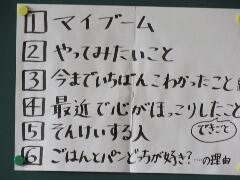 1 マイブーム
2 やってみたいこと
3 今までいちばんこわかったこと
4 最近で心がほっこりしたこと
できごと
5 そんけいする人
6 ごはんとパンどっちが好き?…の理由